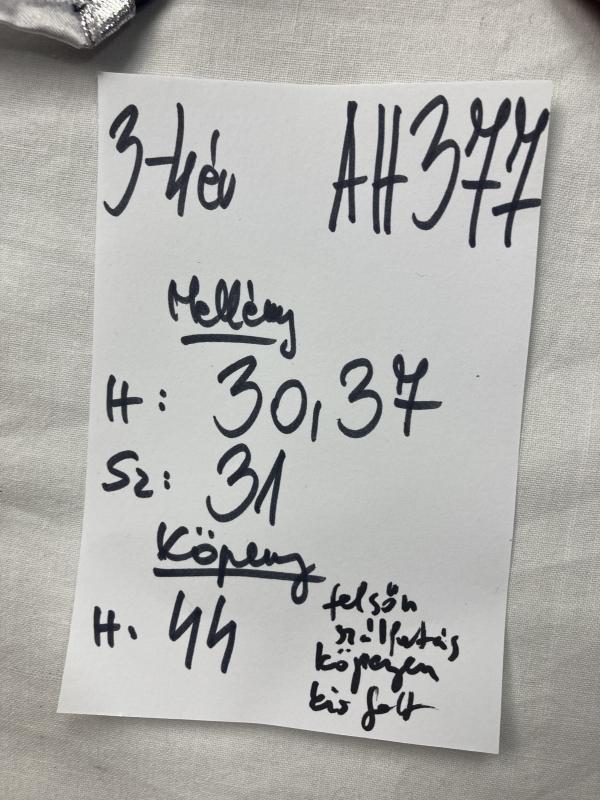 3-4 év AH377
Mellény
H: 30,37
Sz: 31
Köpeny
H. 44
felsőn
szálfutás
köpenyen
kis folt